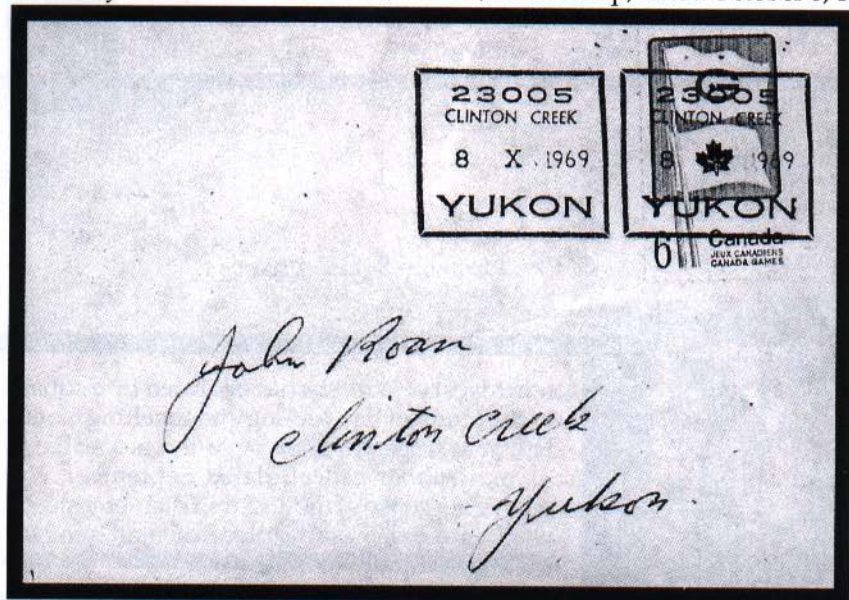 23005
CLINTON CREEK
8 X 1969
YUKON
23005
CLINTON CREEK
8 1969
YUKON
6 Canada
JEUX CANADIENS
CANADA GAMES
John Roan
Clinton Creek
Yukon.